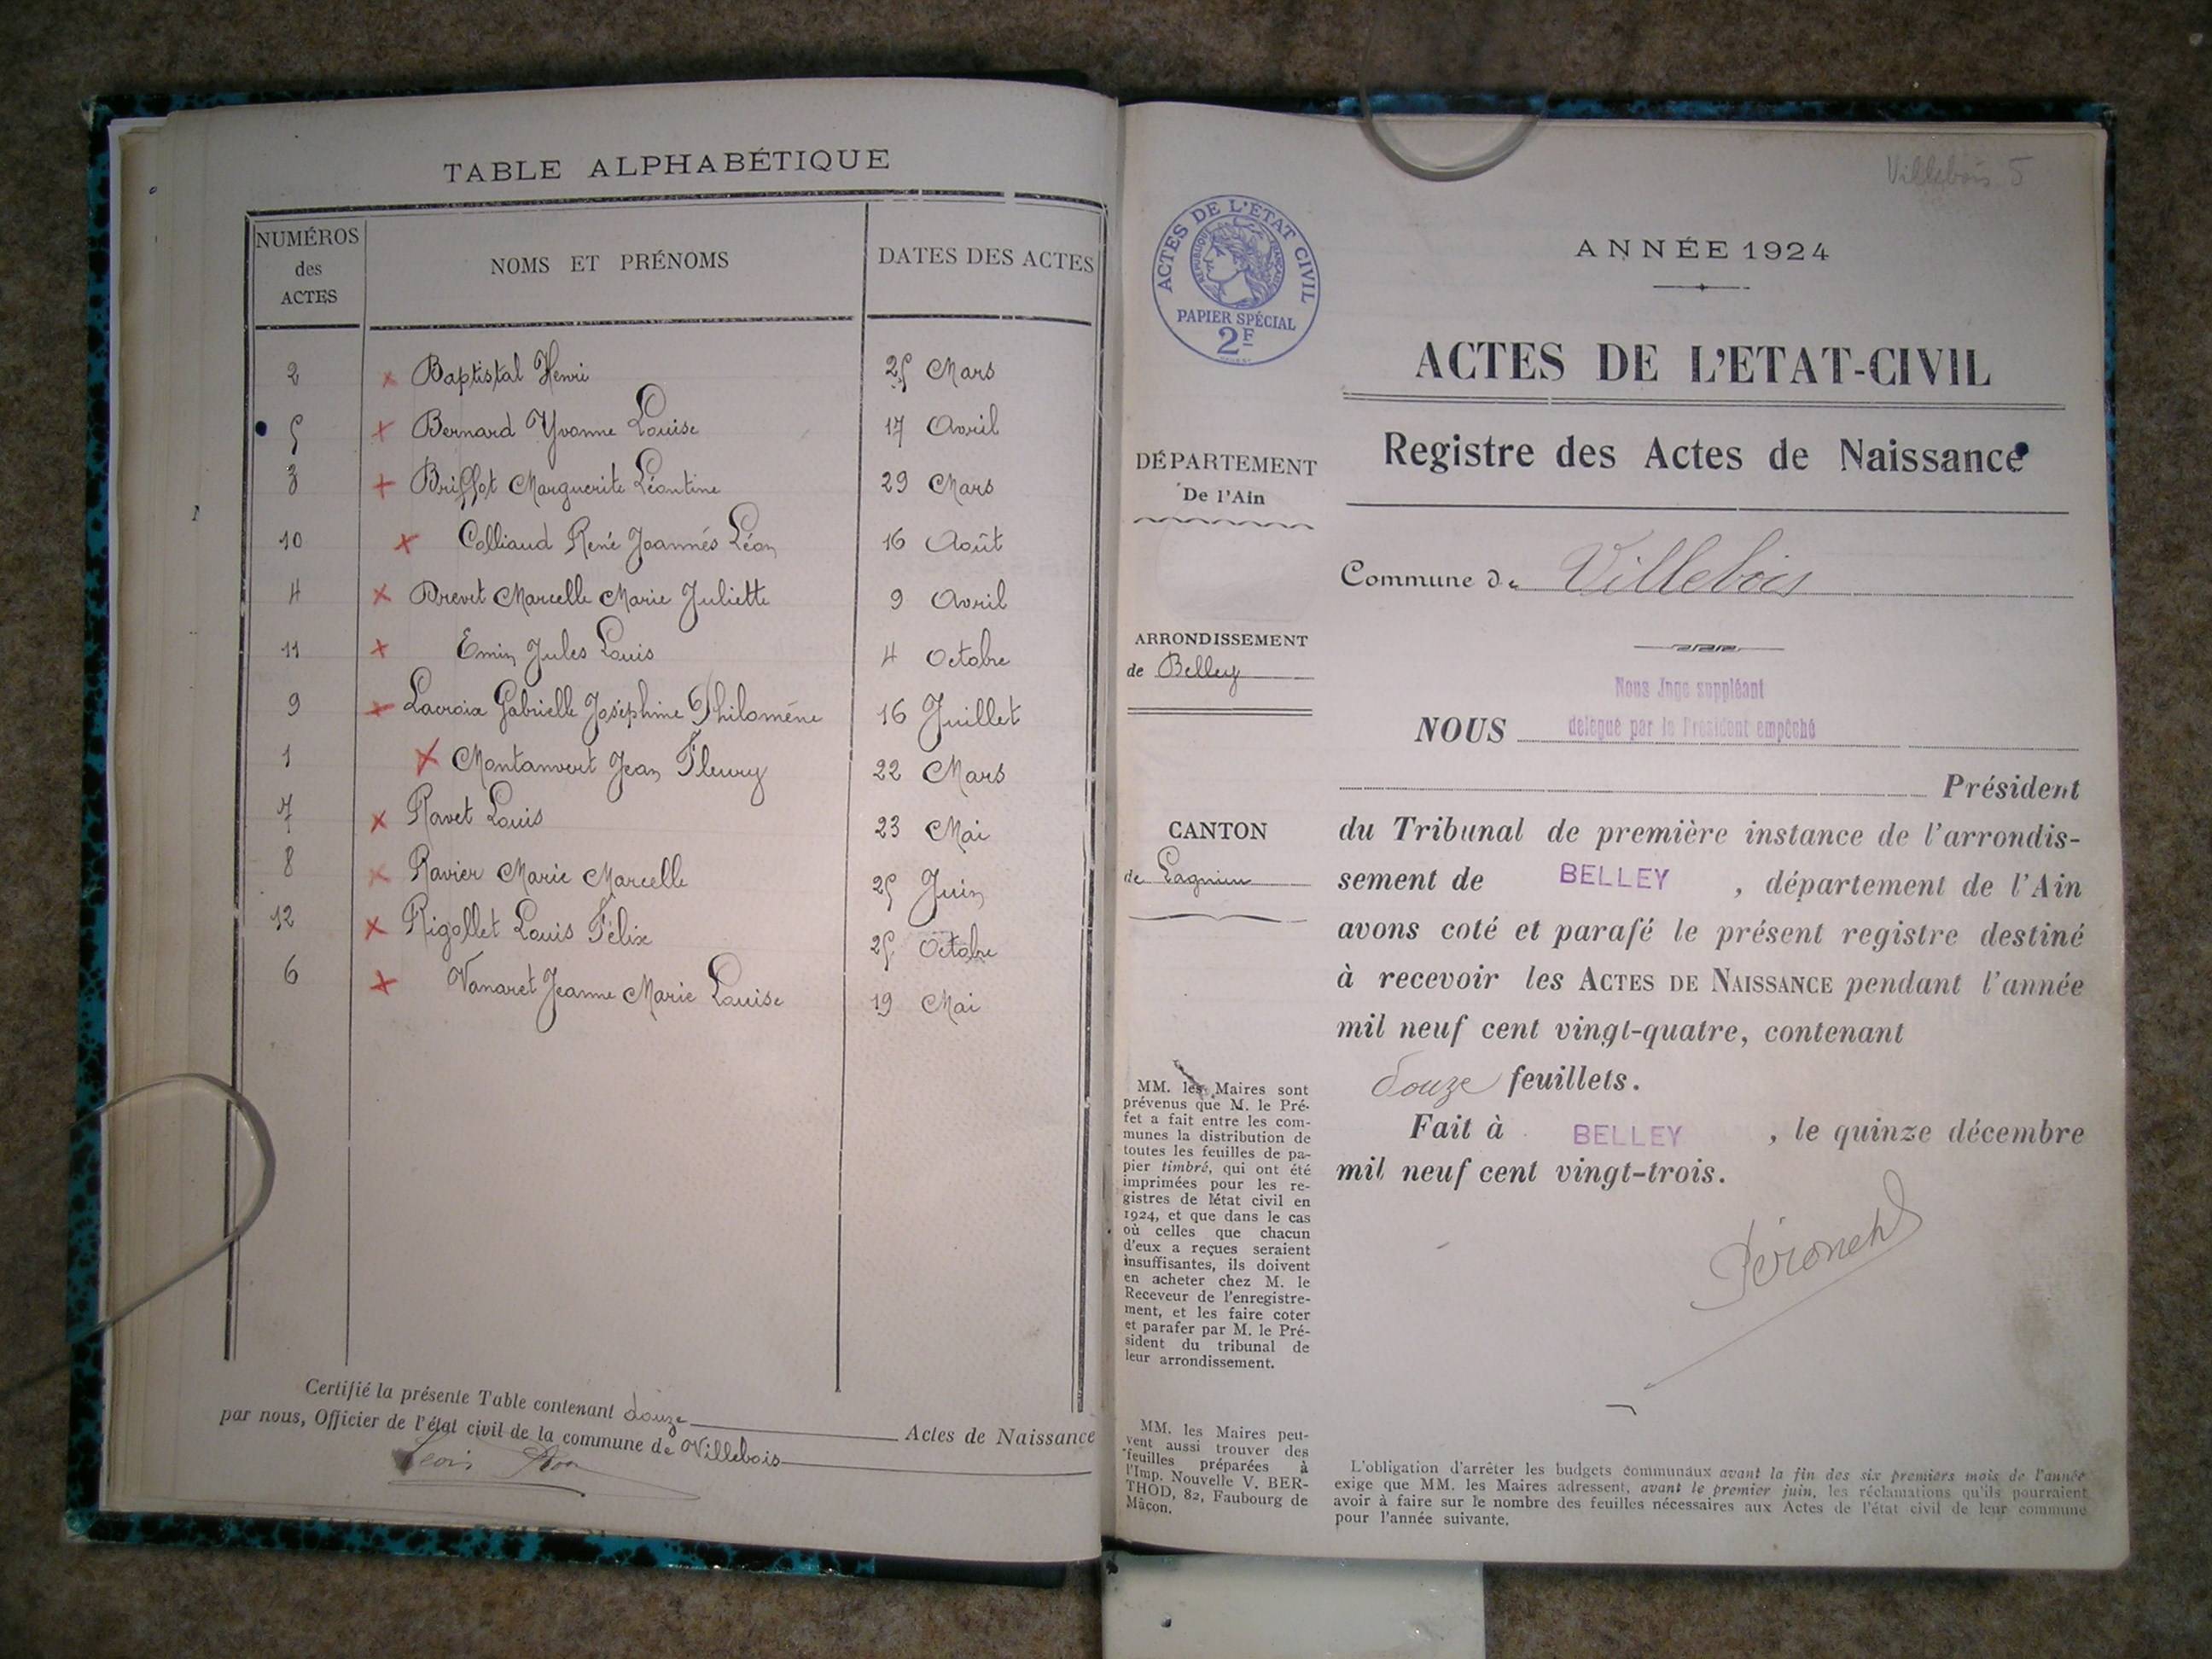 TABLE ALPHABÉTIQUE
NUMÉROS des ACTES
NOMS ET PRÉNOMS
DATES DES ACTES
2 x Baptistal Henri 25 Mars
5 x Bernard Yvonne Louise 17 Avril
3 x Briffot Marguerite Léontine 29 Mars
10 x Colliaud René Joannés Léon 16 Août
4 x Drevet Marcelle Marie Juliette 9 Avril
11 x Emin Jules Louis 4 Octobre
9 x Lacroix Gabrielle Joséphine Philomène 16 Juillet
1 x Montanvert Jean Fleury 22 Mars
7 x Ravet Louis 23 Mai
8 x Ravier Marie Marcelle 25 Juin
12 x Rigollet Louis Félix 25 Octobre
6 x Vanaret Jeanne Marie Louise 19 Mai
Certifié la présente Table contenant douze Actes de Naissance
par nous, Officier de l'état civil de la commune de Villebois
Villebois 5
ACTES DE L'ETAT CIVIL
REPUBLIQUE FRANÇAISE
PAPIER SPÉCIAL
2F
ANNÉE 1924
ACTES DE L'ETAT-CIVIL
Registre des Actes de Naissance
DÉPARTEMENT
De l'Ain
Commune de Villebois
ARRONDISSEMENT
de Belley
CANTON
de Lagnieu
Nous Juge suppléant
NOUS délégué par le Président empêché
Président
du Tribunal de première instance de l'arrondis-
sement de BELLEY, département de l'Ain
avons coté et parafé le présent registre destiné
à recevoir les ACTES DE NAISSANCE pendant l'année
mil neuf cent vingt-quatre, contenant
douze feuillets.
Fait à BELLEY, le quinze décembre
mil neuf cent vingt-trois.
MM. les Maires sont
prévenus que M. le Pré-
fet a fait entre les com-
munes la distribution de
toutes les feuilles de pa-
pier timbré, qui ont été
imprimées pour les re-
gistres de l'état civil en
1924, et que dans le cas
où celles que chacun
d'eux a reçues seraient
insuffisantes, ils doivent
en acheter chez M. le
Receveur de l'enregistre-
ment, et les faire coter
et parafer par M. le Pré-
sident du tribunal de
leur arrondissement.
MM. les Maires peu-
vent aussi trouver des
feuilles préparées à
l'Imp. Nouvelle V. BER-
THOD, 82, Faubourg de
Mâcon.
L'obligation d'arrêter les budgets communaux avant la fin des six premiers mois de l'année
exige que MM. les Maires adressent, avant le premier juin, les réclamations qu'ils pourraient
avoir à faire sur le nombre des feuilles nécessaires aux Actes de l'état civil de leur commune
pour l'année suivante.